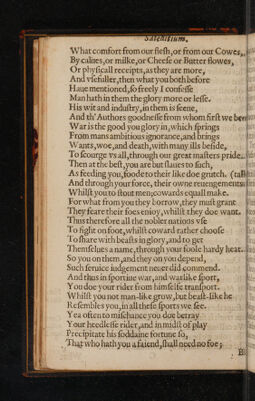 What comfort from our flesh, or from our Cowes,
By calues, or milke, or Cheese or Butter flowes,
Or physicall receipts, as they are more,
And vsefuller, then what you both before
Haue mentioned, so freely I confesse
Man hath in them the glory more or lesse.
His wit and industry, in them is seene,
And th' Authors goodnesse from whom first we been
War is the good you glory in, which springs
From mans ambitious ignorance, and brings
Wants, woe, and death, with many ills beside,
To scourge vs all, through our great masters pride.
Then at the best, you are but slaues to such,
As feeding you, foode to their like do grutch.
And through your force, their owne reuengements
Whilst you to stout men, cowards equall make.
For what from you they borrow, they must grant
They feare their foes enioy, whilst they doe want.
Thus therefore all the nobler natious vse
To fight on foot, whilst coward rather choose
To share with beasts in glory, and to get
Themselues a name, through your foole hardy heat.
So you on them, and they on you depend,
Such seruice iudgement neuer did commend.
And thus in sportine war, and warlike sport,
You doe your rider from himselfe transport.
Whilst you not man-like grow, but beast-like he
Resembles you, in all these sports we see.
Yea often to mischance you doe betray
Your heedlesse rider, and in midst of play
Precipitate his soddaine fortune so,
That who hath you a friend, shall need no foe;